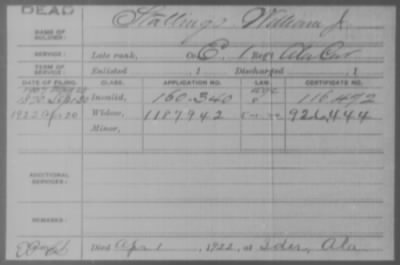 DEAD
NAME OF SOLDIER: Stallings William J.
SERVICE: Late rank, Co. E, 1 Reg't Ala Cav.
TERM OF SERVICE: Enlisted , 1 Discharged , 1
DATE OF FILING. CLASS. APPLICATION NO. LAW. CERTIFICATE NO.
1870 Invalid, 160.340 116.492
1922 Apr 20 Widow, 1187942 926,444
Minor,
ADDITIONAL SERVICES:
REMARKS:
Died Apr 1, 1922, at Ider, Ala.